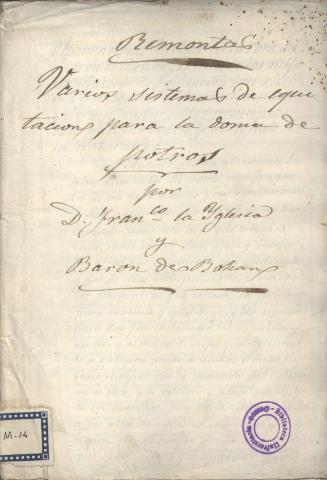 Remontas
Varios sistemas de equi
tacion para la doma de
potros
por
D. Franco la Yglesia
y
Baron de Bohan
M-14
Biblioteca Universitaria